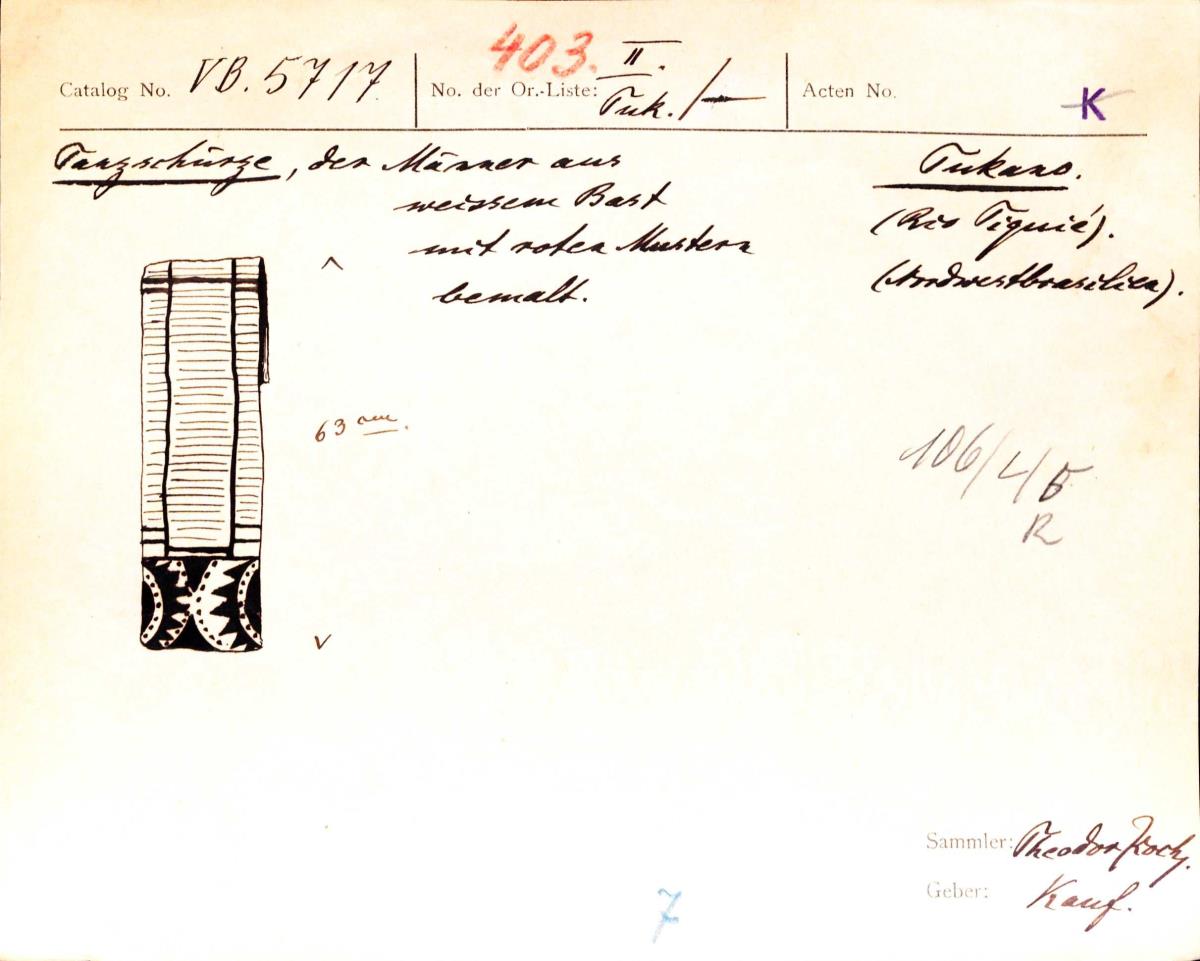 403.
Catalog No. VB. 5717
No. der Or.-Liste: II. Tuk. /—
Acten No.
K
Tanzschürze, der Männer aus
weissem Bast
mit roten Mustern
bemalt.
Tukano.
(Rio Tiquié).
(Nordwestbrasilien).
63 cm.
R
Sammler: Theodor Koch.
Geber: Kauf.
7